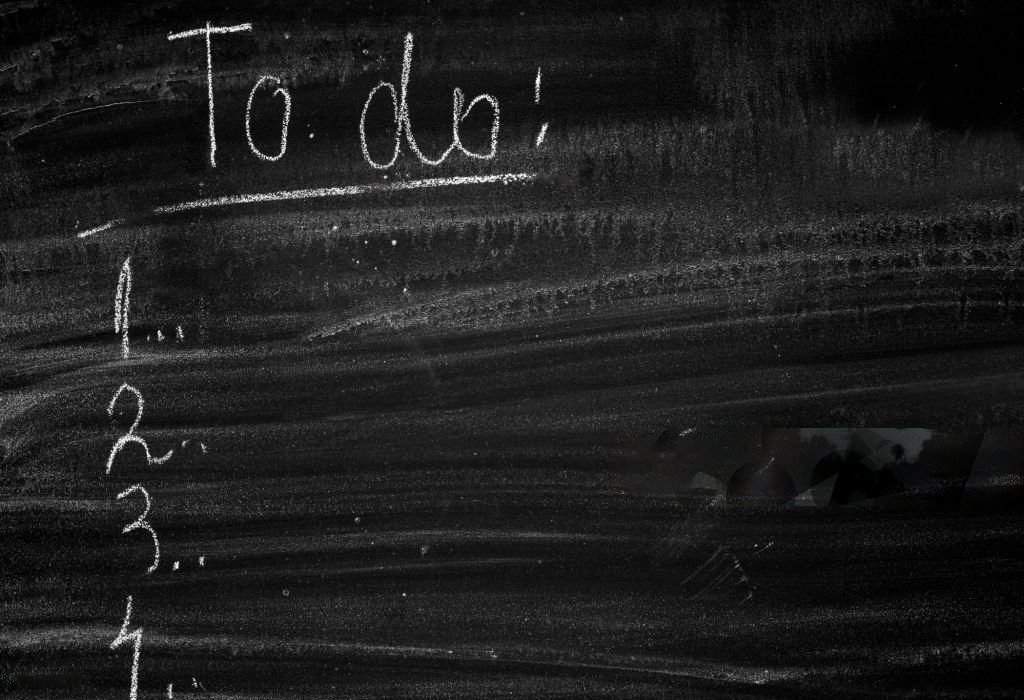 To do!
1...
2..
3..
4..